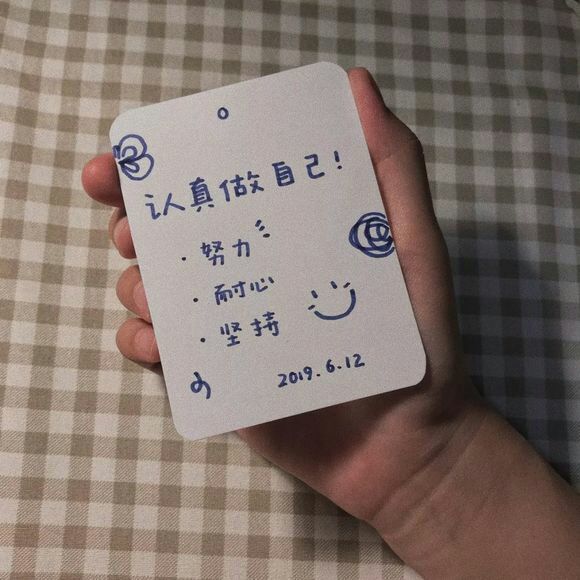 认真做自己！
· 努力
· 耐心
· 坚持
2019.6.12